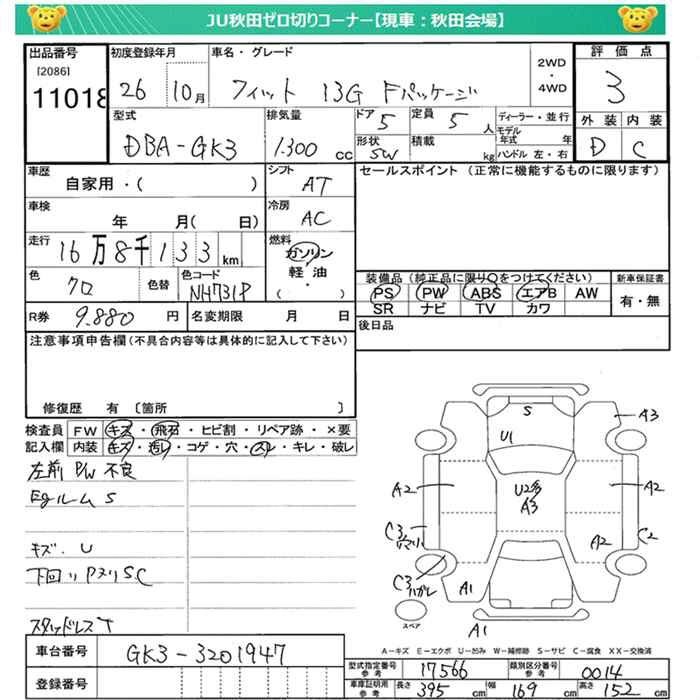 JU秋田ゼロ切りコーナー【現車：秋田会場】
出品番号
[2086]
11018
初度登録年月
26 10月
車名・グレード
フィット 13G Fパッケージ
2WD
・
4WD
評価点
3
外装 内装
D C
型式
DBA-GK3
排気量
1.300 cc
ドア 5
定員 5 人
形状 SW
積載 kg
ディーラー・並行
モデル年式 年
ハンドル 左・右
車歴
自家用・( )
シフト
AT
セールスポイント (正常に機能するものに限ります)
車検
年 月( 日)
冷房
AC
走行
16万8千133km
燃料
ガソリン
軽・油
( ・ )
色
クロ
色替
色コード
NH731P
装備品 (純正品に限り○をつけてください)
PS PW ABS エアB AW
SR ナビ TV カワ
新車保証書
有・無
R券 9.880 円
名変期限 月 日
後日品
注意事項申告欄(不具合内容等は具体的に記入して下さい)
修復歴 有 〔箇所 〕
検査員記入欄
FW キズ・飛石・ヒビ割・リペア跡・×要
内装 キズ・汚レ・コゲ・穴・スレ・キレ・破レ
左前 P/W 不良
Egルーム S
キズ. U
下回り Pヌリ S.C
スタッドレス T
S
U1
A3
A2
U2多
A3
A2
C3
A2
C2
C3
A1
スペア
A1
A－キズ E－エクボ U－凹み W－補修跡 S－サビ C－腐食 XX－交換済
車台番号 GK3-3201947
登録番号
型式指定番号 参考 17566
類別区分番号 参考 0014
車庫証明用 参考 長さ 395 cm 幅 169 cm 高さ 152 cm